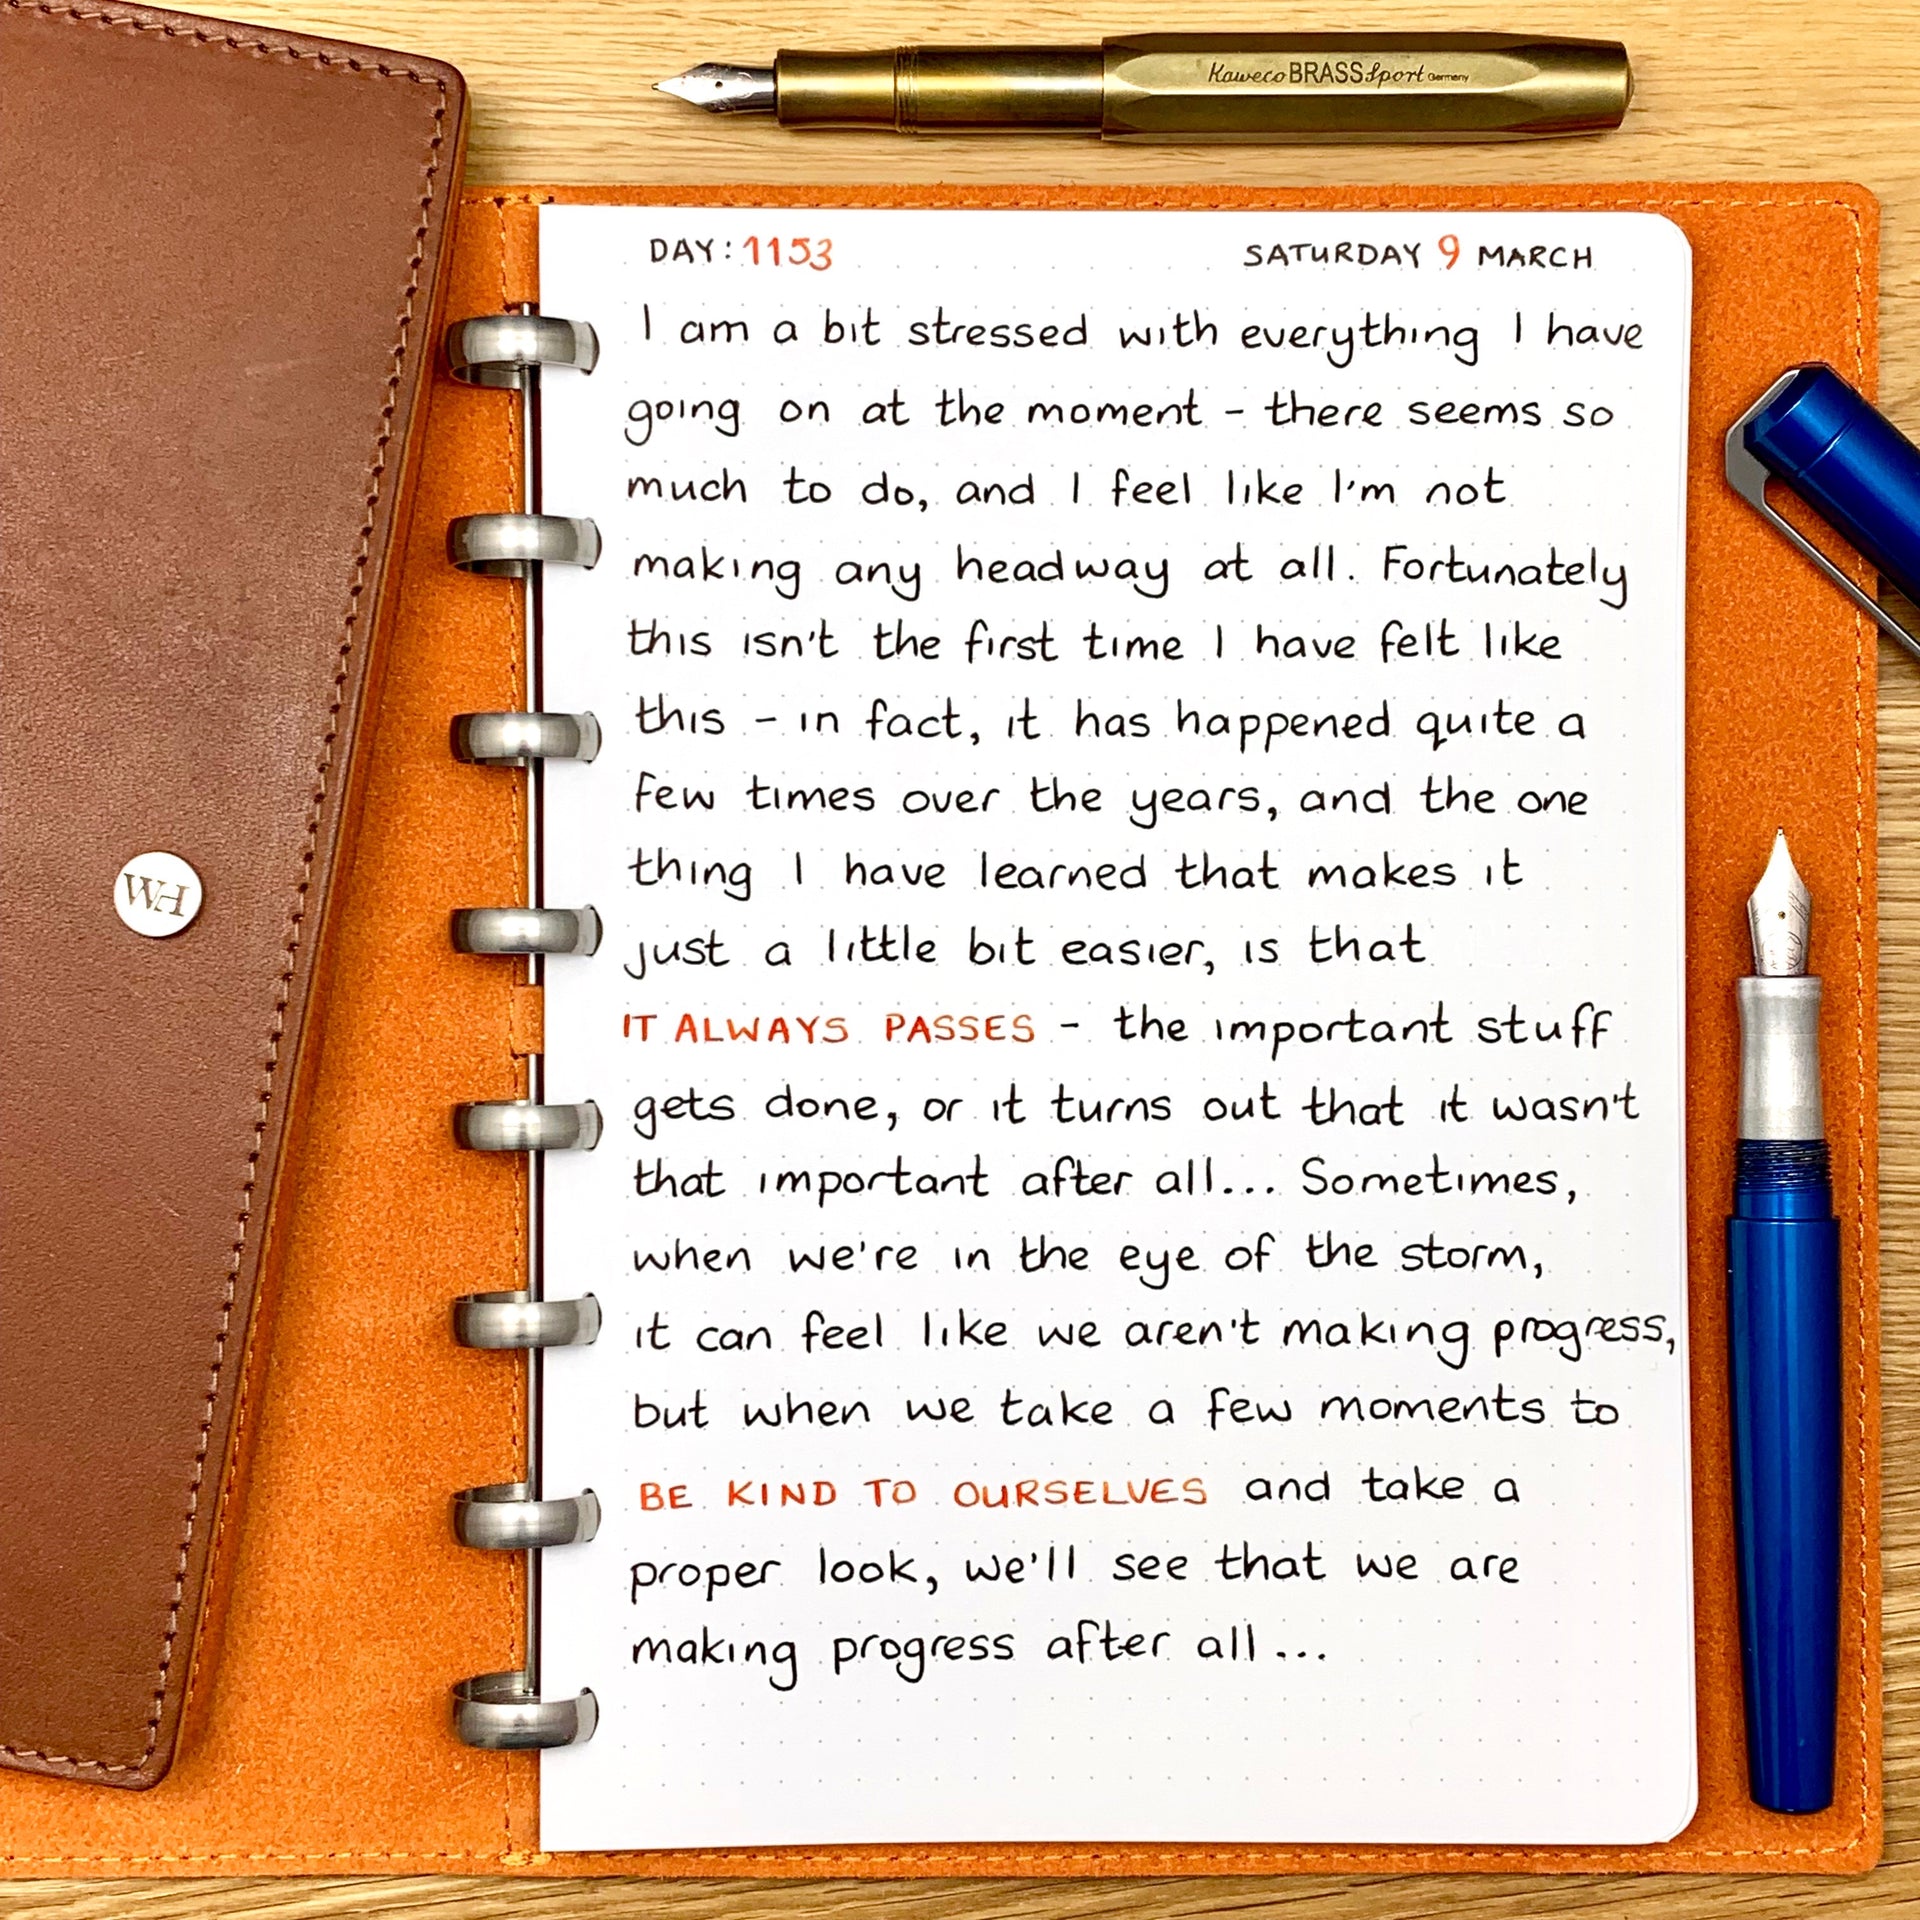 Kaweco BRASS Sport Germany
DAY: 1153 SATURDAY 9 MARCH
I am a bit stressed with everything I have
going on at the moment - there seems so
much to do, and I feel like I'm not
making any headway at all. Fortunately
this isn't the first time I have felt like
this - in fact, it has happened quite a
few times over the years, and the one
thing I have learned that makes it
just a little bit easier, is that
IT ALWAYS PASSES - the important stuff
gets done, or it turns out that it wasn't
that important after all... Sometimes,
when we're in the eye of the storm,
it can feel like we aren't making progress,
but when we take a few moments to
BE KIND TO OURSELVES and take a
proper look, we'll see that we are
making progress after all...
WH